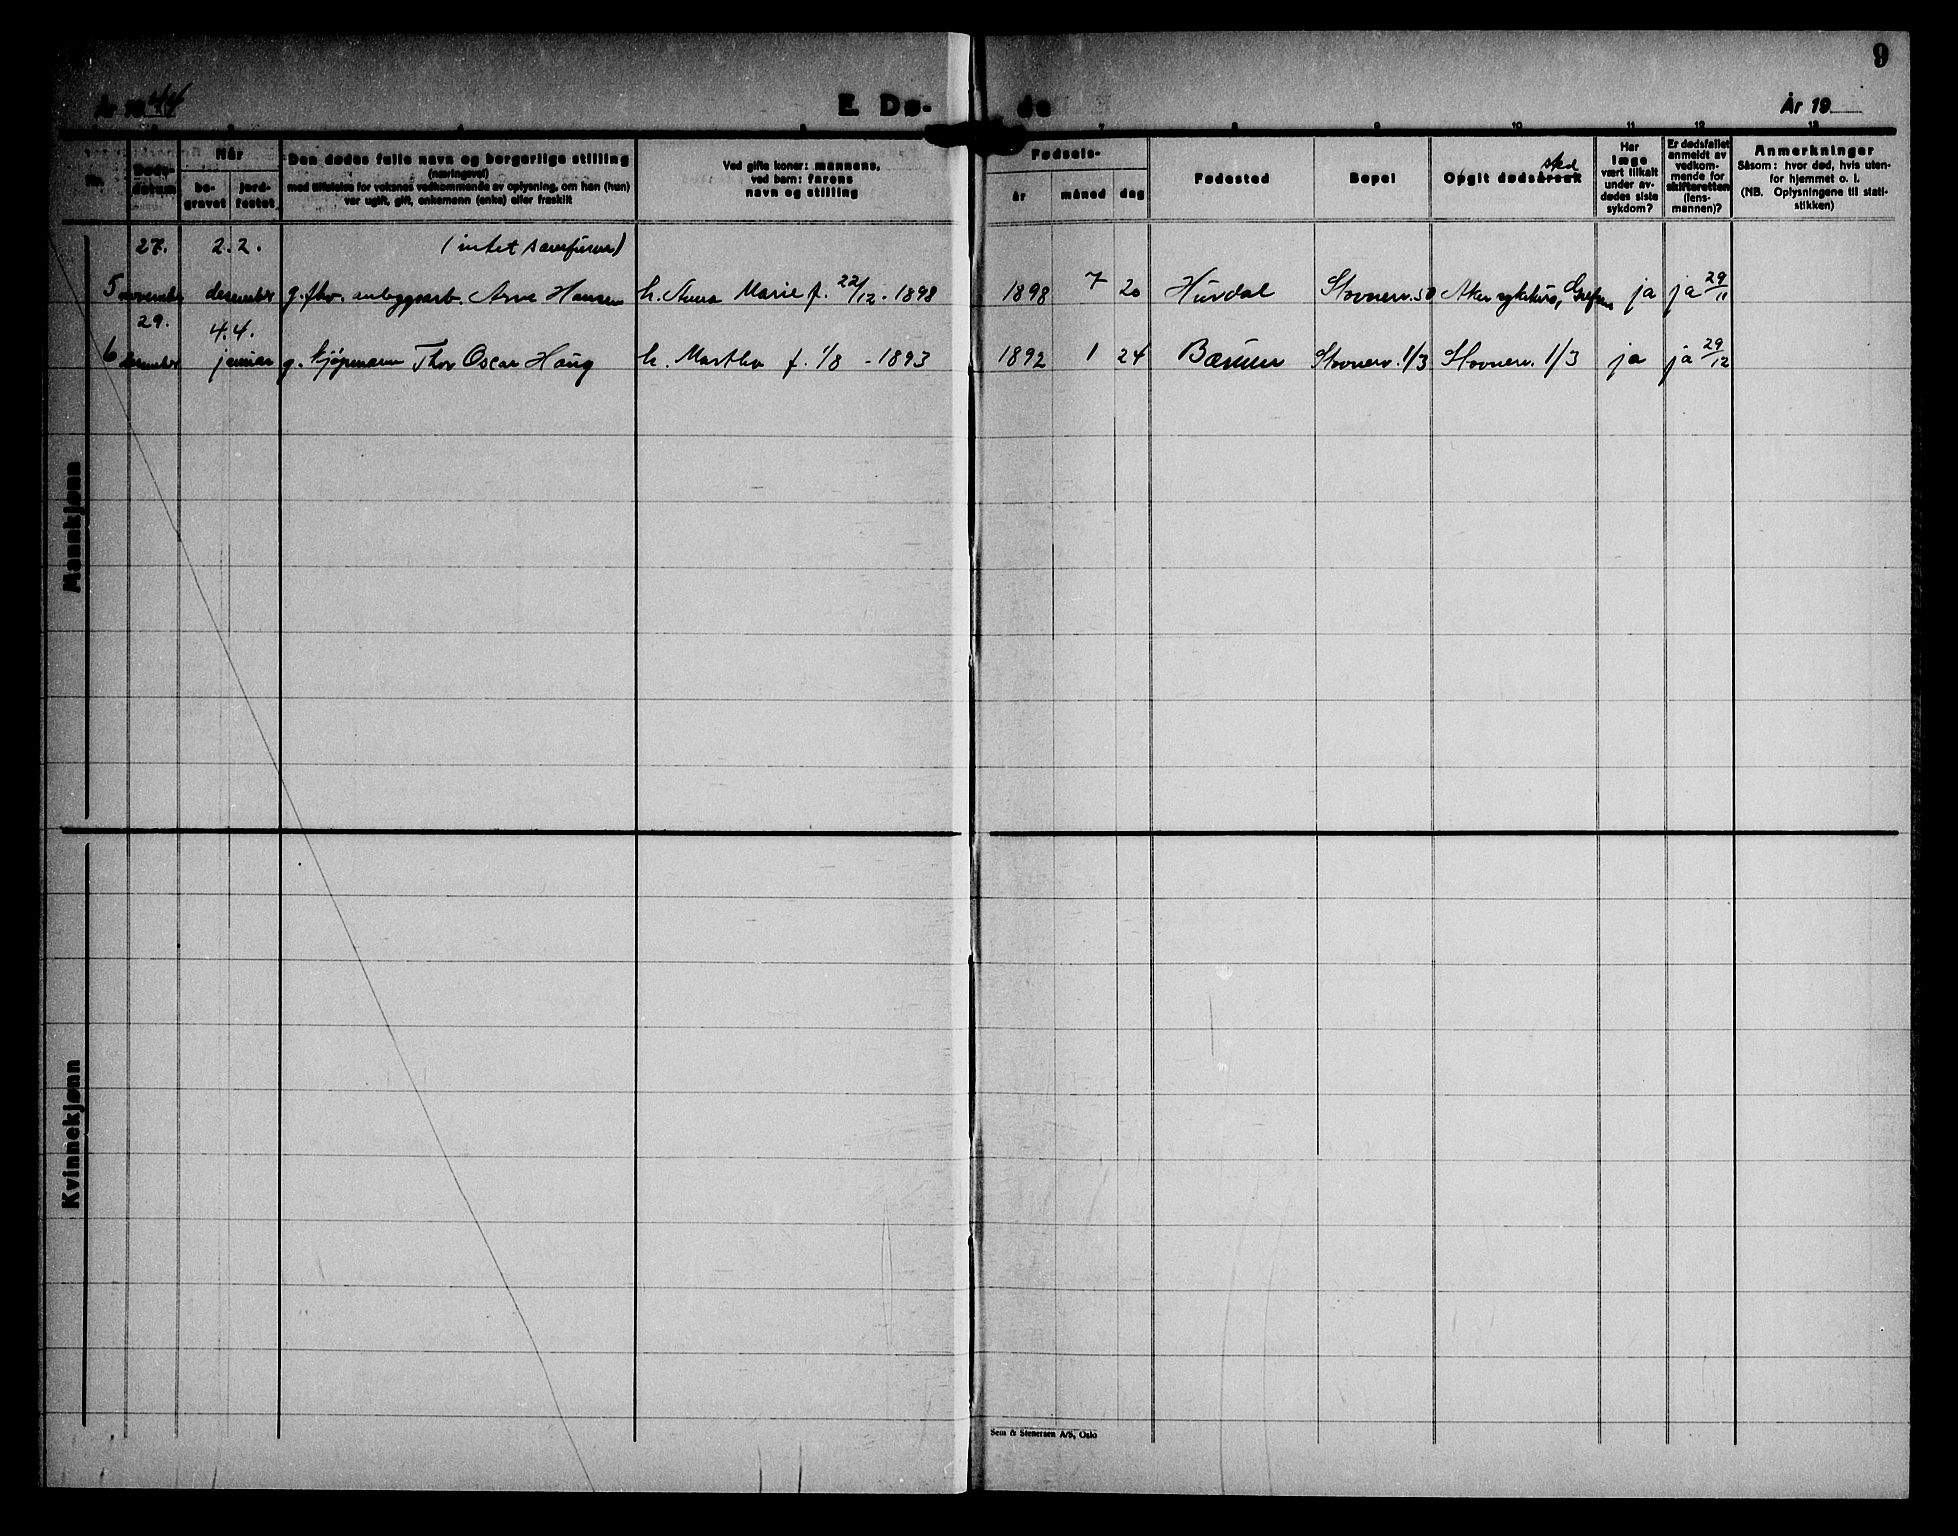 9
År 1944
E. Dø-
de
År 19
7 8 9 10 11 12 13
Nr.
Døds-
datum
Når
be-
gravet
jord-
festet
Den dødes fulle navn og borgerlige stilling
(næringsvei)
med tilføielse for voksnes vedkommende av oplysning, om han (hun)
var ugift, gift, enkemann (enke) eller fraskilt
Ved gifte koner: mannens,
ved barn: farens
navn og stilling
Fødsels-
år
måned
dag
Fødested
Bopel
sted
Opgit dødsårsak
Har
læge
vært tilkalt
under av-
dødes siste
sykdom?
Er dødsfallet
anmeldt av
vedkom-
mende for
skifteretten
(lens-
mannen)?
Anmerkninger
Såsom: hvor død, hvis uten-
for hjemmet o. l.
(NB. Oplysningene til stati-
stikken)
Mannkjønn
27. 2. 2. (intet
5 november desember g. fhv. anleggsarb. Arve Hansen h. Anna Marie f. 22/12 - 1898 1898 7 20 Hurdal Stovnerv. 50 Aker sykehus, ja ja 29/11
29. 4. 4.
6 desember januar g. kjøpmann Thor Oscar Haug h. Martha f. 1/8 - 1893 1892 1 24 Bærum Stovnerv. 1/3 Stovnerv. 1/3 ja ja 29/12
Kvinnekjønn
Sem & Stenersen A/S, Oslo